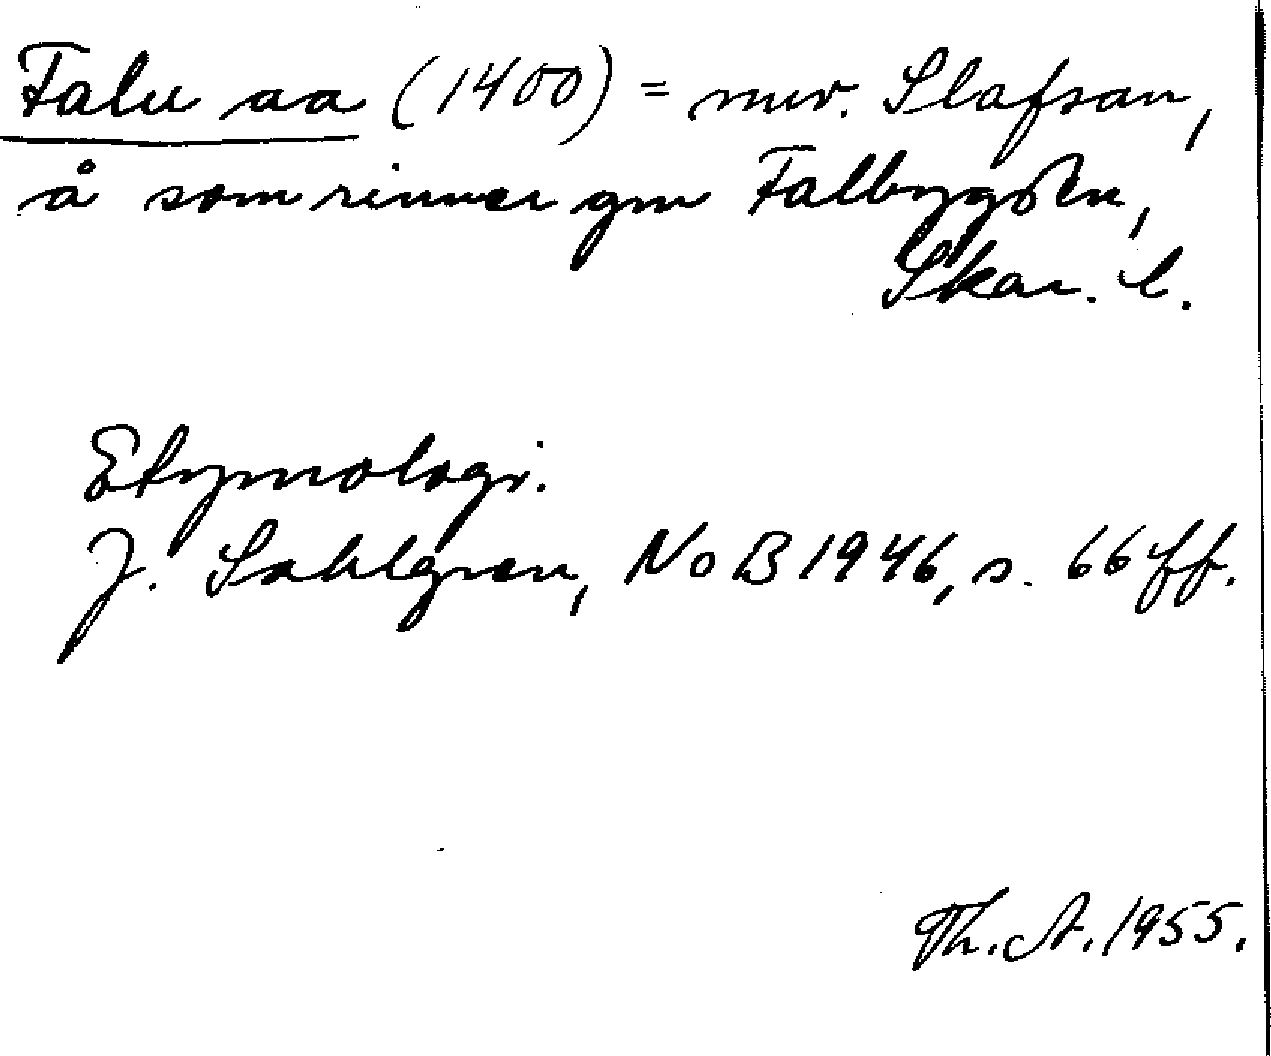 Falu aa (1400) = nuv. Slafsan,
å som rinner gm Falbygden,
Skar. l.
Etymologi.
J. Sahlgren, NoB 1946, s. 66 ff.
Th. A. 1955.